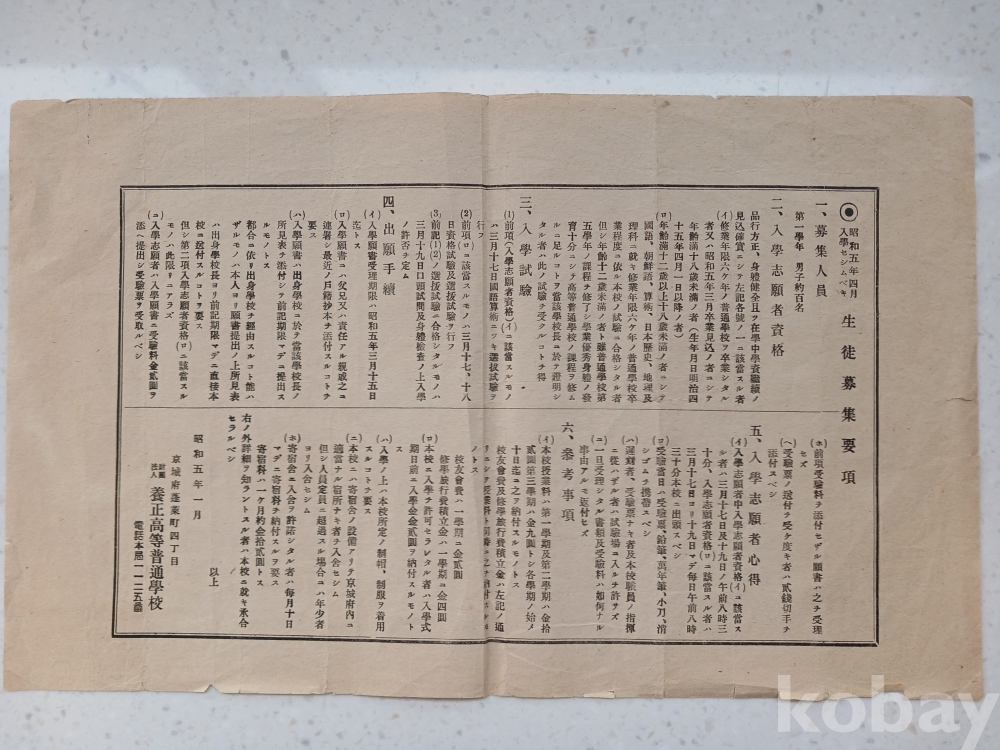 ◉昭和五年四月入學セシムベキ生徒募集要項
一、募集人員
第一學年 男子約百名
二、入學志願者資格
品行方正、身體健全且ツ在學中學資繼續ノ
見込確實ニシテ左記各號ノ一ニ該當スル者
(イ)修業年限六ケ年ノ普通學校ヲ卒業シタル
者又ハ昭和五年三月卒業見込ノ者ニシテ
年齡滿十八歲未滿ノ者(生年月日明治四
十五年四月一日以降ノ者)
(ロ)年齡滿十二歲以上十八歲未滿ノ者ニシテ
國語、朝鮮語、算術、日本歷史、地理及
理科ニ就キ修業年限六ケ年ノ普通學校卒
業程度ニ依ル本校ノ試驗ニ合格シタル者
但シ年齡十二歲未滿ノ者ト雖普通學校第
五學年ノ課程ヲ修了シ學業優秀身體ノ發
育十分ニシテ高等普通學校ノ課程ヲ修ム
ルニ足ルコトヲ當該學校長ニ於テ證明シ
タル者ハ此ノ試驗ヲ受クルコトヲ得
三、入學試驗
(1)前項(入學志願者資格)(イ)ニ該當スルモノ
ハ三月十七日國語算術ニツキ選拔試驗ヲ
行フ
(2)前項(ロ)ニ該當スルモノハ三月十七、十八
日資格試驗及選拔試驗ヲ行フ
(3)前記(1)(2)ノ選拔試驗ニ合格シタルモノハ
三月十九日口頭試問及身體檢査ノ上入學
ノ許否ヲ定ム
四、出願手續
(イ)入學願書受理期限ハ昭和五年三月十五日
迄トス
(ロ)入學願書ニハ父兄又ハ責任アル親戚之ニ
連署シ最近ノ戶籍抄本ヲ添付スルコトヲ
要ス
(ハ)入學願書ハ出身學校ニ於テ當該學校長ノ
所見表ヲ添付シテ前記期限マデニ提出ス
ルモノトス
都合ニ依リ出身學校ヲ經由スルコト能ハ
ザルモノハ本人ヨリ願書提出ノ上所見表
ハ出身學校長ヨリ前記期限マデニ直接本
校ニ送付スルコトヲ要ス
但シ第二項入學志願者資格(ロ)ニ該當スル
モノハ此限リニアラズ
(ニ)入學志願者ハ入學願書ニ受驗料金貳圓ヲ
添ヘ提出シ受驗票ヲ受取ルベシ
(ホ)前項受驗料ヲ添付セザル願書ハ之ヲ受理
セズ
(ヘ)受驗票ノ送付ヲ受ケ度キ者ハ貳錢切手ヲ
添付スベシ
五、入學志願者心得
(イ)入學志願者中入學志願者資格(イ)ニ該當ス
ル者ハ三月十七日及十九日ノ午前八時三
十分、入學志願者資格(ロ)ニ該當スル者ハ
三月十七日ヨリ十九日マデ每日午前八時
三十分本校ニ出頭スベシ
(ロ)受驗當日ハ受驗票、鉛筆、萬年筆、小刀、消
シゴムヲ携帶スベシ
(ハ)遲刻者、受驗票ナキ者及本校職員ノ指揮
ニ從ハザル者ハ試驗場ニ入ルヲ許サズ
(ニ)一旦受理シタル書類及受驗料ハ如何ナル
事由アルモ返付セズ
六、參考事項
(イ)本校授業料ハ第一學期及第二學期ハ金拾
貳圓第三學期ハ金九圓トシ各學期ノ始メ
十日迄ニ之ヲ納付スルモノトス
校友會費及修學旅行費積立金ハ左記ノ通
リニシテ授業料ト同時ニ之ヲ納付スルモ
ノトス
校友會費ハ一學期ニ金貳圓
修學旅行費積立金ハ一學期ニ金四圓
(ロ)本校ニ入學ヲ許可セラレタル者ハ入學式
期日前ニ入學金金貳圓ヲ納付スルモノト
ス
(ハ)入學ノ上ハ本校所定ノ制帽、制服ヲ着用
スルコトヲ要ス
(ニ)本校ニハ寄宿舍ノ設備アリテ京城府內ニ
適當ナル宿所ナキ者ヲ入舍セシム
但シ人員定員ニ超過スル場合ニハ年少者
ヨリ入舍セシム
(ホ)寄宿舍ニ入舍ヲ許諾シタル者ハ每月十日
マデニ寄宿料ヲ納付スルヲ要ス
寄宿料ハ一ケ月約金拾貳圓トス
右ノ外詳細ヲ知ラントスル者ハ本校ニ就キ承合
セラルベシ
以上
昭和五年一月
京城府蓬萊町四丁目
財團法人 養正高等普通學校
電話本局一一二五番
kobay